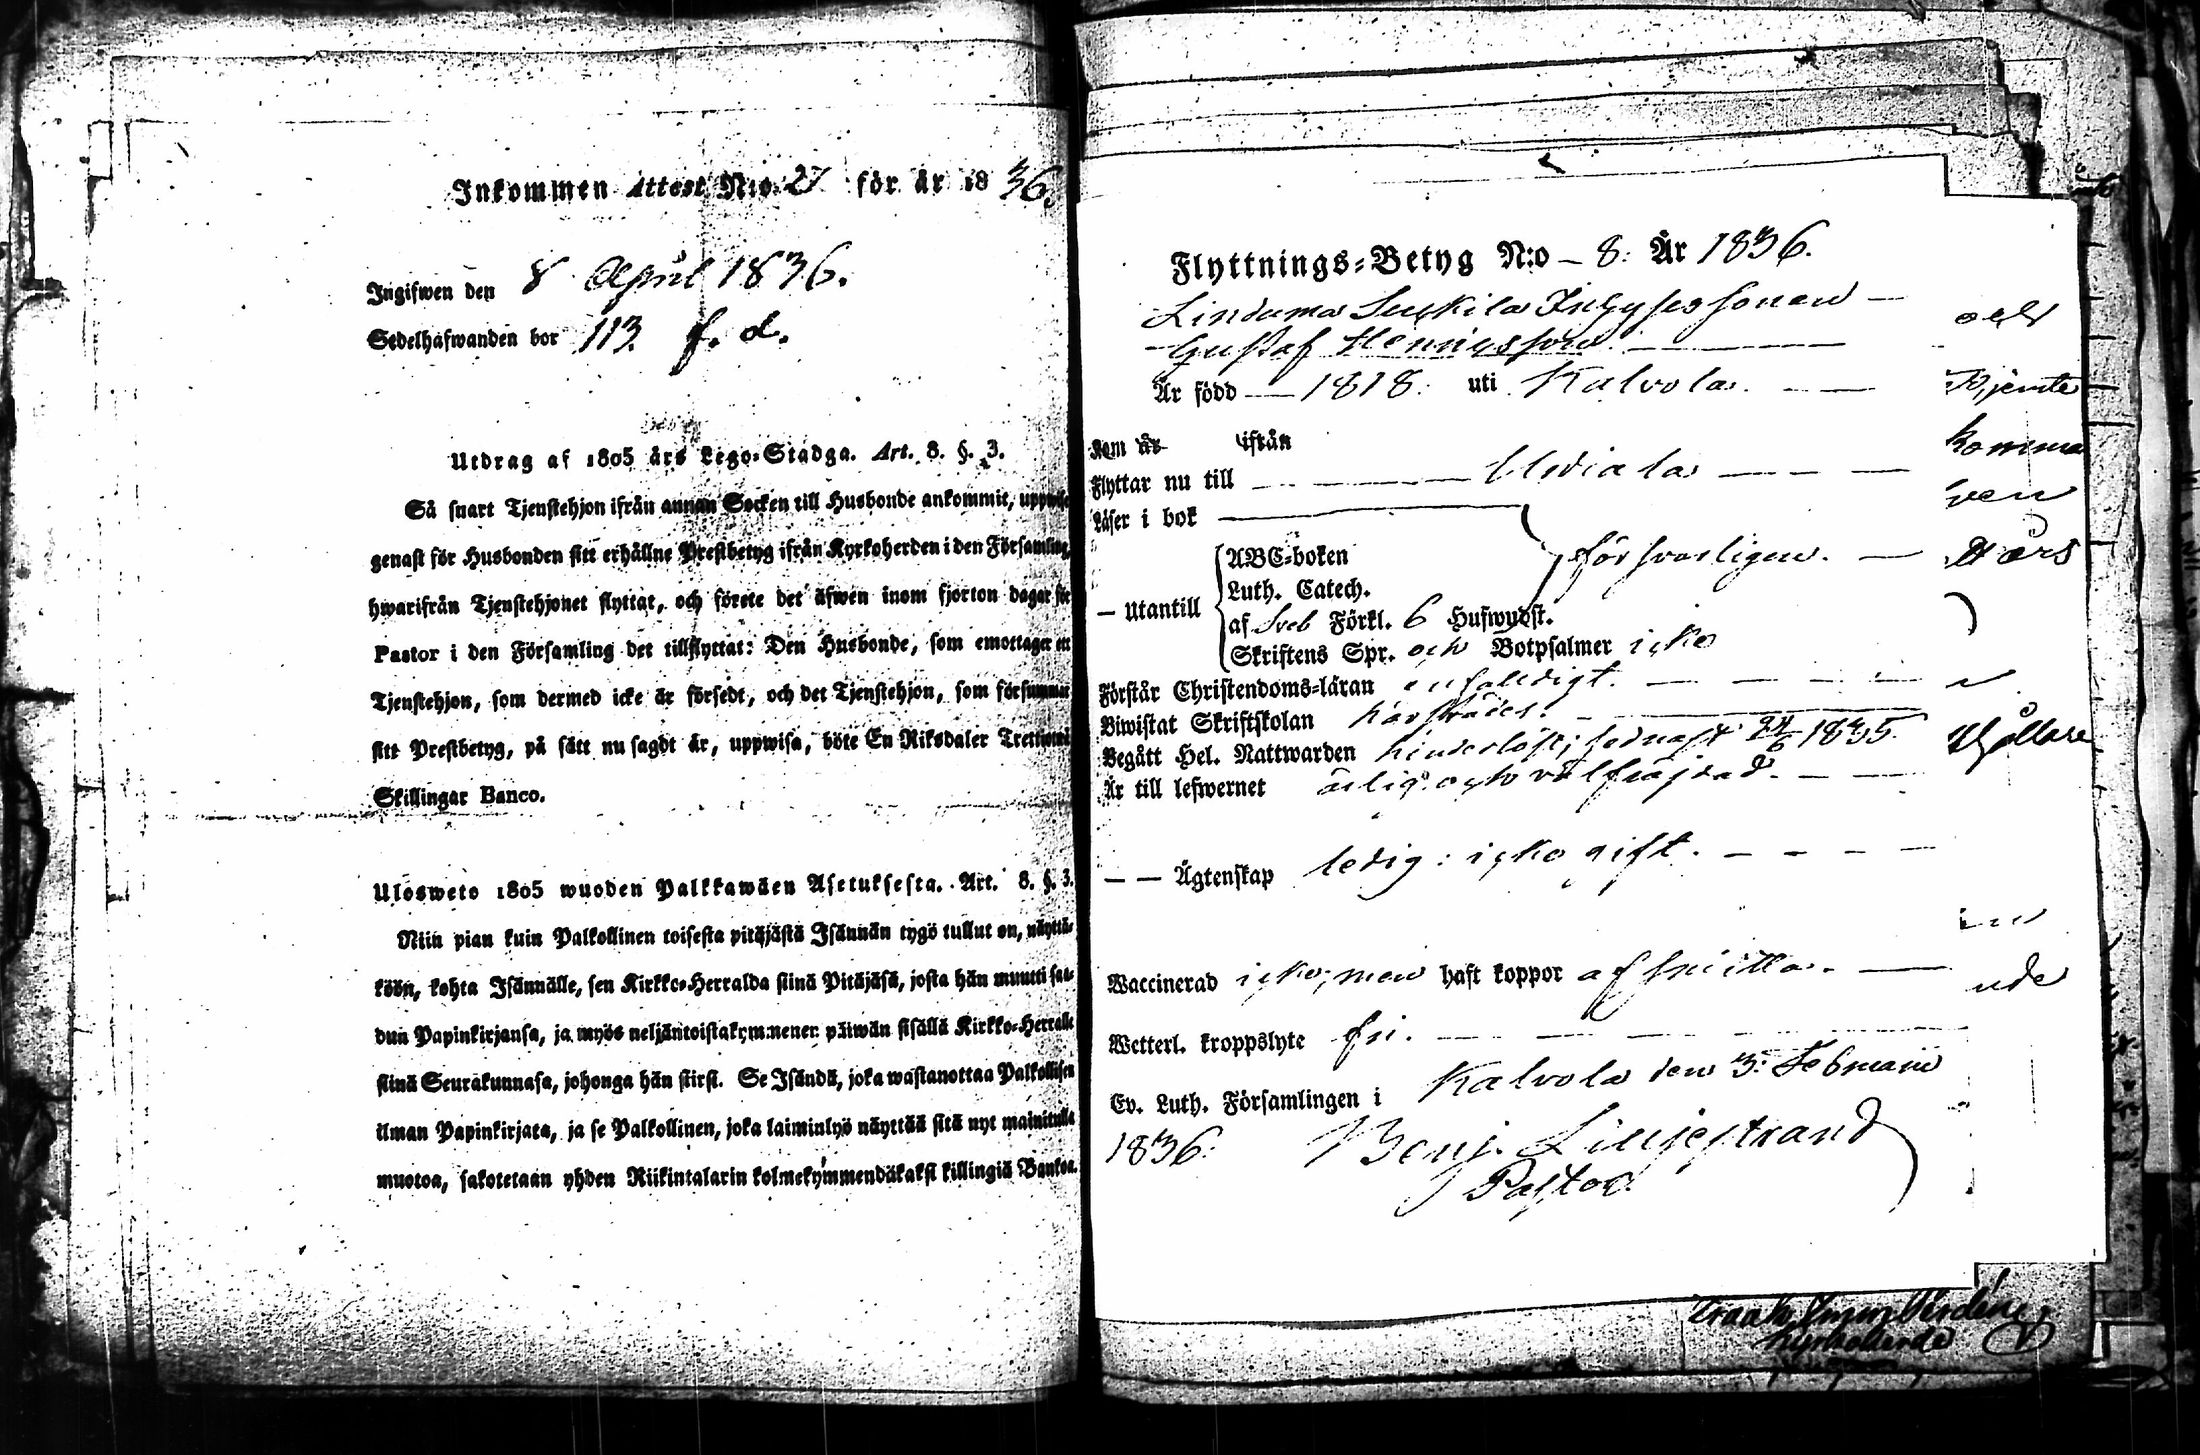 Inkommen Attest N:o 27 för år 1836.
Ingifwen den 8 April 1836.
Sedelhafwanden bor 113. f. d.
Utdrag af 1805 års Lego-Stadga. Art. 8. §. 3.
Så snart Tjenstehjon ifrån annan Socken till Husbonde ankommit,
genast för Husbonden sitt erhållne Prestbetyg ifrån Kyrkoherden i den Församling,
hwarifrån Tjenstehjonet flyttat, och förete det äfwen inom fjorton dagar för
Pastor i den Församling det tillflyttat: Den Husbonde, som emottager ett
Tjenstehjon, som dermed icke är försedt, och det Tjenstehjon, som försummar
sitt Prestbetyg, på sätt nu sagdt är, uppwisa, böte En Riksdaler Trettiotwå
Skillingar Banco.
Ulosweto 1805 wuoden Palkkawäen Asetuksesta. Art. 8. §. 3.
Niin pian kuin Palkollinen toisesta pitäjästä Isännän tygö tullut on, näyttä-
köön, kohta Isännälle, sen Kirkko-Herralda siinä Pitäjäsä, josta hän muutti saa-
dun Papinkirjansa, ja myös neljäntoistakymmenen päiwän sisällä Kirkko-Herralle
siinä Seurakunnasa, johonga hän siirsi. Se Isändä, joka wastanottaa Palkollisen
ilman Papinkirjata, ja se Palkollinen, joka laiminlyö näyttää sitä nyt mainitulla
muotoa, sakotetaan yhden Riikintalarin kolmekymmendäkaksi killingiä Bankoa.
Flyttnings-Betyg N:o 8: År 1836.
Gustaf Henricsson
Är född 1818: uti Kalvola.
som är ifrån
Flyttar nu till Urdiala
Läser i bok
— Utantill
ABC-boken försvarligen.
Luth. Catech.
af Sveb Förkl. 6 Hufwudst.
Skriftens Spr. och Botpsalmer icke
Förstår Christendoms-läran enfaldigt.
Biwistat Skriftskolan
Begått Hel. Nattwarden hinderlöst; sednast 24/6 1835.
Är till lefwernet ärlig och välfräjdad.
— — Ägtenskap ledig: icke gift.
Waccinerad icke, men haft koppor
Wetterl. kroppslyte fri.
Ev. Luth. Församlingen i Kalvola den 3: Februarii
1836: Benj. Liljestrand
Pastor.
och
komma
ven